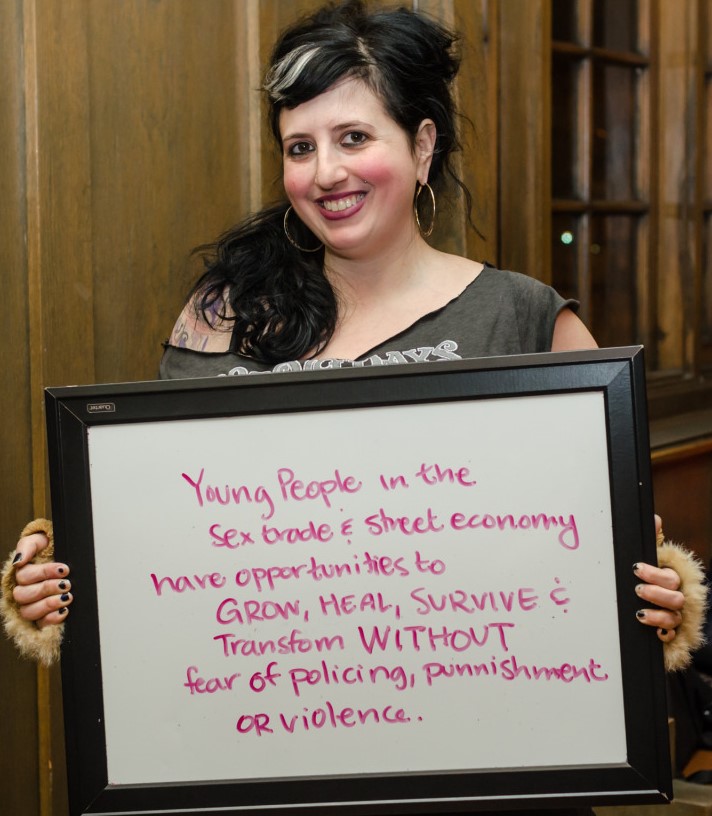 Quartet
Young People in the
Sex trade & street economy
have opportunities to
GROW, HEAL, SURVIVE &
Transfom WITHOUT
fear of policing, punnishment
OR violence.